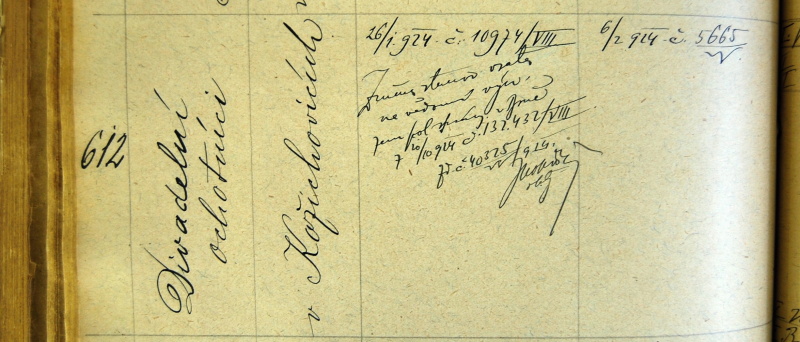 612
Divadelní
ochotníci
v Kožichovicích
26/1 924 č. 10974/VIII
na vědomí výn.
zem. pol. správy v Brně
z 20/10 924 č. 132.432/VIII
č. 40325/924.
6/2 924 č. 5665